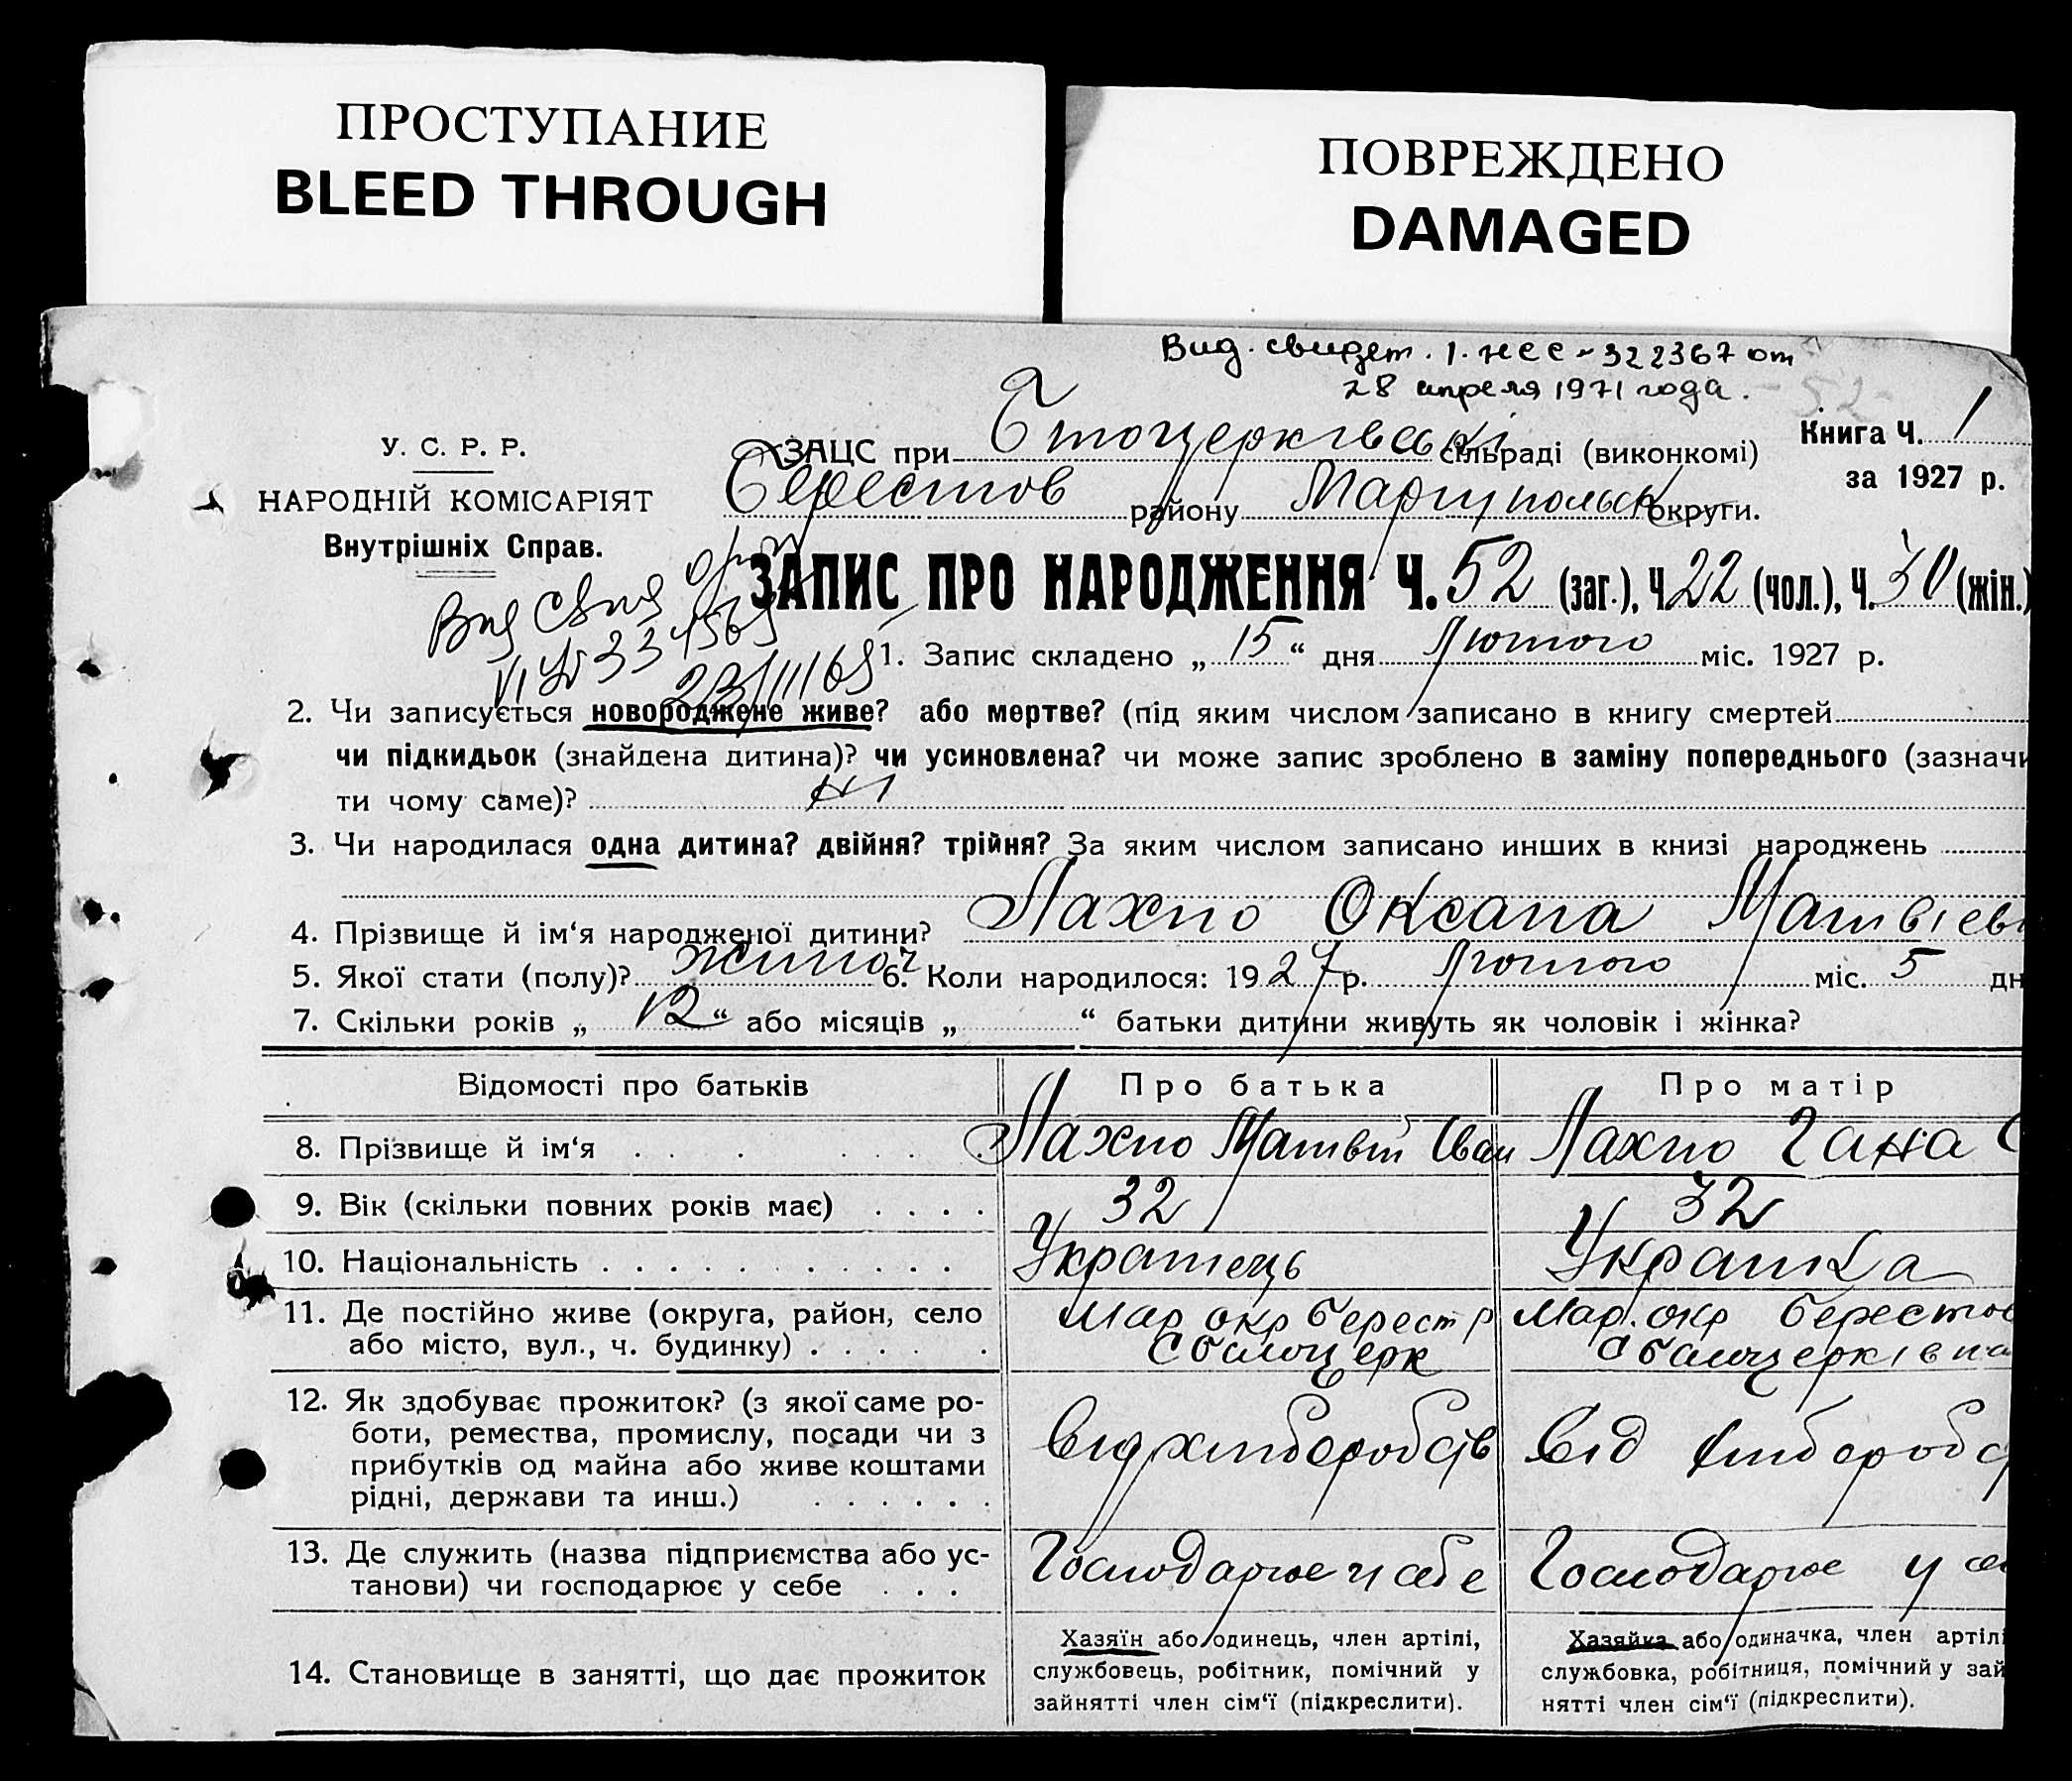 ПРОСТУПАНИЕ
BLEED THROUGH
ПОВРЕЖДЕНО
DAMAGED
Вид. свидет. 1. НСС - 322367 от
28 апреля 1971 года.
52
Книга Ч. 1
за 1927 р.
У. С. Р. Р.
НАРОДНІЙ КОМІСАРІЯТ
Внутрішніх Справ.
ЗАЦС при Білоцерківські сільраді (виконкомі)
Берестов району Маріупольськ округи.
Вид свид
23/III 65
ЗАПИС ПРО НАРОДЖЕННЯ Ч. 52 (заг.), Ч. 22 (чол.), Ч. 30 (жін.)
1. Запис складено „ 15 “ дня Лютого міс. 1927 р.
2. Чи записується новороджене живе? або мертве? (під яким числом записано в книгу смертей
чи підкидьок (знайдена дитина)? чи усиновлена? чи може запис зроблено в заміну попереднього (зазначи
ти чому саме)? Ні
3. Чи народилася одна дитина? двійня? трійня? За яким числом записано инших в книзі народжень
4. Прізвище й ім‘я народженої дитини? Лахно Оксана Матвієв
5. Якої стати (полу)? жіноч 6. Коли народилося: 1927 р. Лютого міс. 5 дн
7. Скільки років „ 12 “ або місяців „ “ батьки дитини живуть як чоловік і жінка?
Відомості про батьків Про батька Про матір
8. Прізвище й ім‘я Лахно Матвій Іван Лахно Гана С
9. Вік (скільки повних років має) 32 32
10. Національність Українець Українка
11. Де постійно живе (округа, район, село Мар окр Берест р Мар. окр Берестов
або місто, вул., ч. будинку) С Білоцерк С Білоцерківка
12. Як здобуває прожиток? (з якої саме ро-
боти, ремества, промислу, посади чи з Від хліборобств Від хлібороб
прибутків од майна або живе коштами
рідні, держави та инш.)
13. Де служить (назва підприємства або ус- Господарює у себе Господарює у се
танови) чи господарює у себе
14. Становище в занятті, що дає прожиток
Хазяїн або одинець, член артілі,
службовець, робітник, помічний у
зайнятті член сім‘ї (підкреслити).
Хазяйка або одиначка, член артілі
службовка, робітниця, помічний у зай
нятті член сім‘ї (підкреслити).